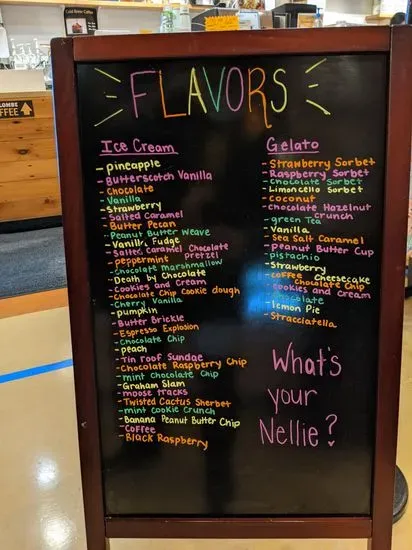 FLAVORS
Ice Cream
- pineapple
- Butterscotch Vanilla
- Chocolate
- Vanilla
- Strawberry
- Salted Caramel
- Butter Pecan
- Peanut Butter Weave
- Vanilla Fudge
- Salted Caramel Chocolate
pretzel
- peppermint
- Chocolate Marshmallow
- Death by Chocolate
- Cookies and Cream
- Chocolate Chip Cookie dough
- Cherry Vanilla
- pumpkin
- Butter Brickle
- Espresso Explosion
- Chocolate Chip
- peach
- Tin roof Sundae
- Chocolate Raspberry Chip
- mint chocolate Chip
- Graham Slam
- moose tracks
- Twisted Cactus Sherbet
- mint cookie Crunch
- Banana Peanut Butter Chip
- Coffee
- Black Raspberry
Gelato
- Strawberry Sorbet
- Raspberry Sorbet
- Chocolate Sorbet
- Limoncello Sorbet
- coconut
- chocolate Hazelnut
crunch
- green Tea
- Vanilla
- Sea Salt Caramel
- peanut Butter Cup
- pistachio
- Strawberry Cheesecake
- coffee chocolate Chip
- cookies and Cream
- chocolate
- lemon Pie
- Stracciatella
What's
your
Nellie?